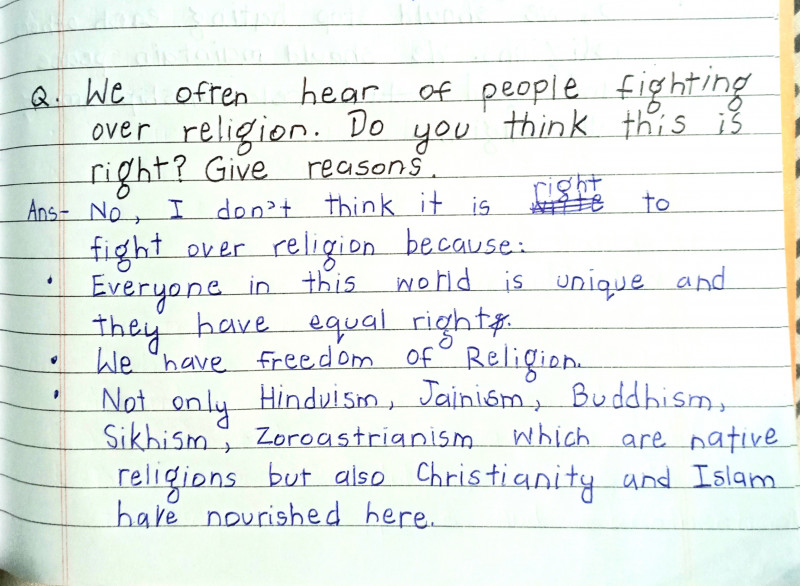 Q. We often hear of people fighting
over religion. Do you think this is
right? Give reasons.
Ans- No, I don't think it is right to
fight over religion because:
• Everyone in this world is unique and
they have equal rights.
• We have freedom of Religion.
• Not only Hinduism, Jainism, Buddhism,
Sikhism, Zoroastrianism which are native
religions but also Christianity and Islam
have nourished here.